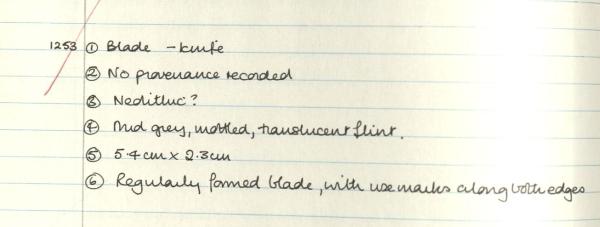 1253 ① Blade - knife
② No provenance recorded
③ Neolithic?
④ Mid grey, mottled, translucent flint.
⑤ 5.4cm x 2.3cm
⑥ Regularly formed blade, with use marks along both edges